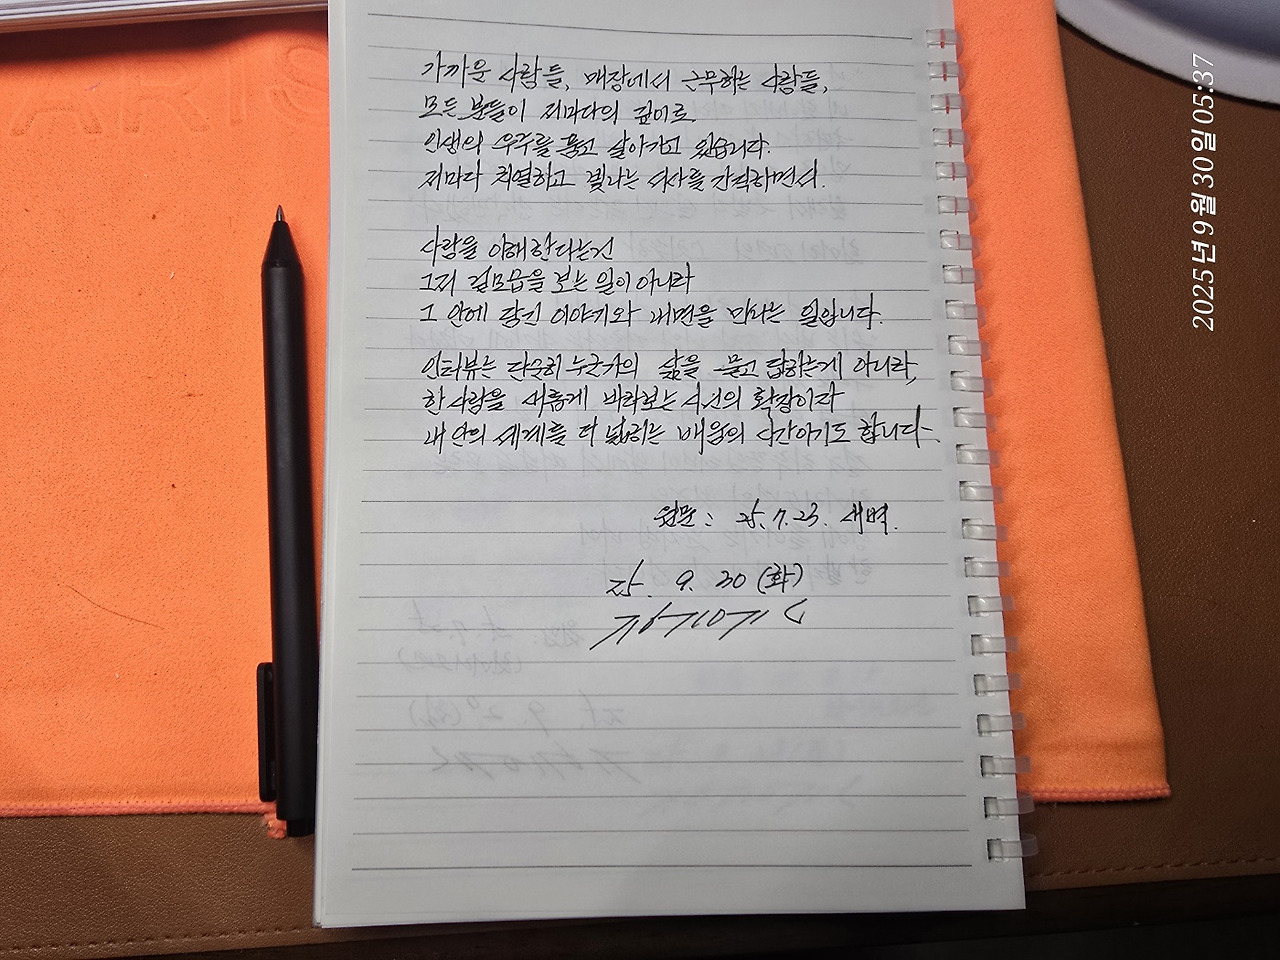 가까운 사람들, 매장에서 근무하는 사람들,
모든 분들이 저마다의 깊이로
인생의 우주를 품고 살아가고 있습니다.
저마다 치열하고 빛나는 서사를 간직하면서.
사람을 이해한다는건
그저 겉모습을 보는 일이 아니라
그 안에 담긴 이야기와 내면을 만나는 일입니다.
인터뷰는 단순히 누군가의 삶을 묻고 답하는게 아니라,
한 사람을 새롭게 바라보는 시선의 확장이다
내 안의 세계를 더 넓히는 배움의 시간이기도 합니다.
원문: 25.7.23. 새벽.
25. 9. 30 (화)
2025년 9월 30일 05:37
ARIS